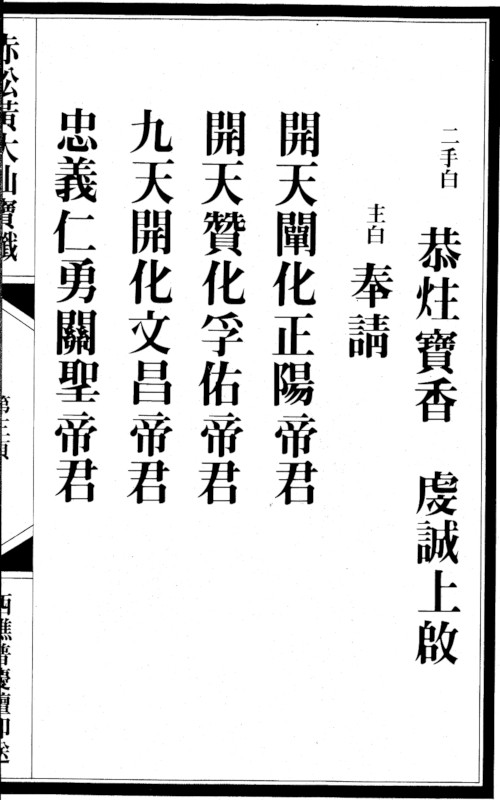 二手白 恭炷寶香 虔誠上啟
主白 奉請
開天闡化正陽帝君
開天贊化孚佑帝君
九天開化文昌帝君
忠義仁勇關聖帝君
赤松黃大仙寶懺
第三頁
西樵普慶壇印送